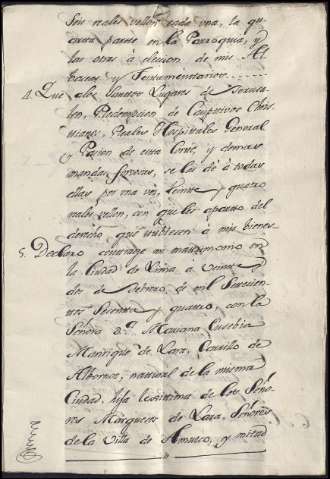 Seis reales vellon cada una, la qu
arta parte en la Parroquia, y
las otras à eleccion de mis Al
baceas y Testamentarios
4. Que a los Santos Lugares de Jerusa
lem, Redempcion de Cautivos Chris
tianos, Reales Hospitales General
y Pasion de esta Corte, y demas
mandas forzosas, se les dè à todas
ellas por una vez, treinta y quatro
reales vellon, con que los aparto del
derecho, que tubiesen à mis bienes
5. Declaro contrage mi matrimonio en
la Ciudad de Lima à veinte y
dos de Febrero de mil Setecien
tos Setenta y quatro, con la
Señora D.ª Mariana Eusebia
Manrique de Lara, Carrillo de
Albornoz, natural de la misma
Ciudad, hija lexitima de los Seño
res Marqueses de Lara, Señores
de la Villa de Amusco, y mitad